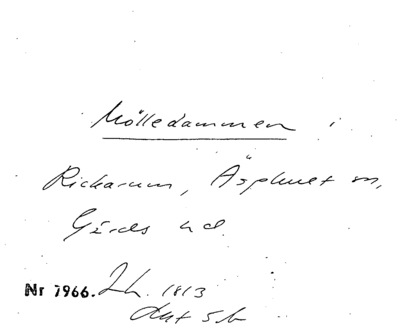 Mölledammen i
Rickarum, Äsphult sn,
Gärds hd.
Nr 7966. Lh. 1813
Avt 5b